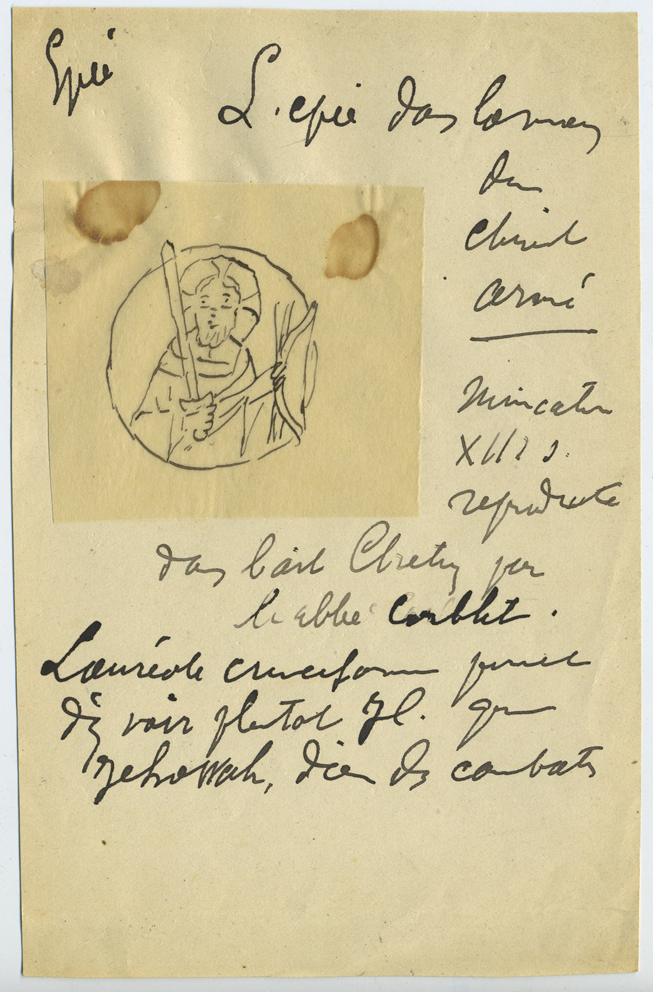 Epée
L'epée dans la main
du
christ
armé
Miniature
XIIe s.
reproduite
dans l'art Chretien par
l'abbé Corblet.
L'auréole cruciforme permet
d'y voir plutot J.C. que
Jehowah, dieu des combats